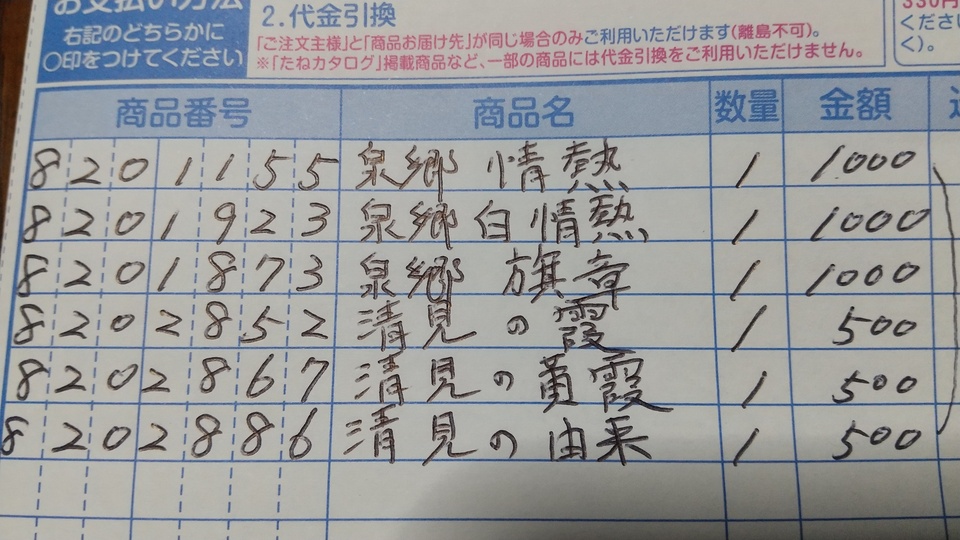 お支払い方法
右記のどちらかに
〇印をつけてください
2.代金引換
「ご注文主様」と「商品お届け先」が同じ場合のみご利用いただけます(離島不可)。
※「たねカタログ」掲載商品など、一部の商品には代金引換をご利用いただけません。
330円
くださ
く)。
商品番号 商品名 数量 金額
8201155 泉郷 情熱 1 1000
8201923 泉郷 白情熱 1 1000
8201873 泉郷 旗章 1 1000
8202852 清見の霞 1 500
8202867 清見の黄霞 1 500
8202886 清見の由来 1 500